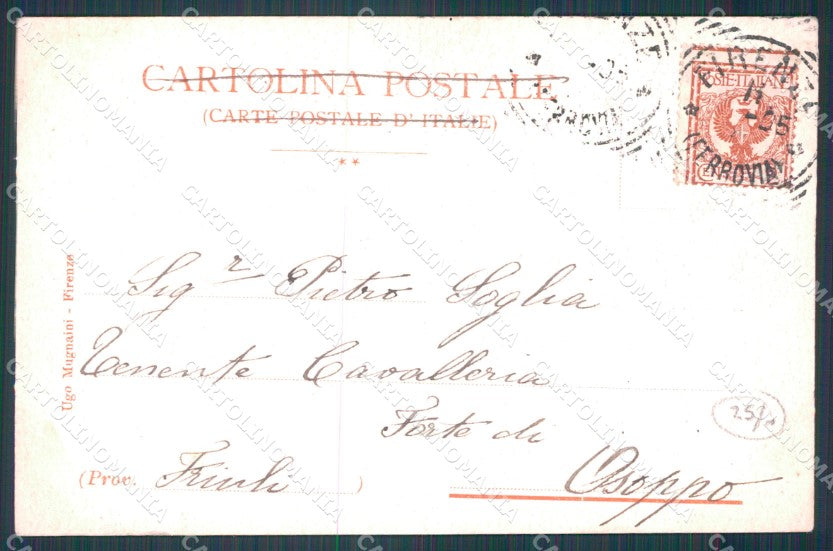 CARTOLINA POSTALE
(CARTE POSTALE D'ITALIE)
FIRENZE
(FERROVIA)
POSTE ITALIANE
Ugo Mugnaini - Firenze
Sigr Pietro Soglia
Tenente Cavalleria
Forte di
(Prov. Friuli) Osoppo
CARTOLINOMANIA